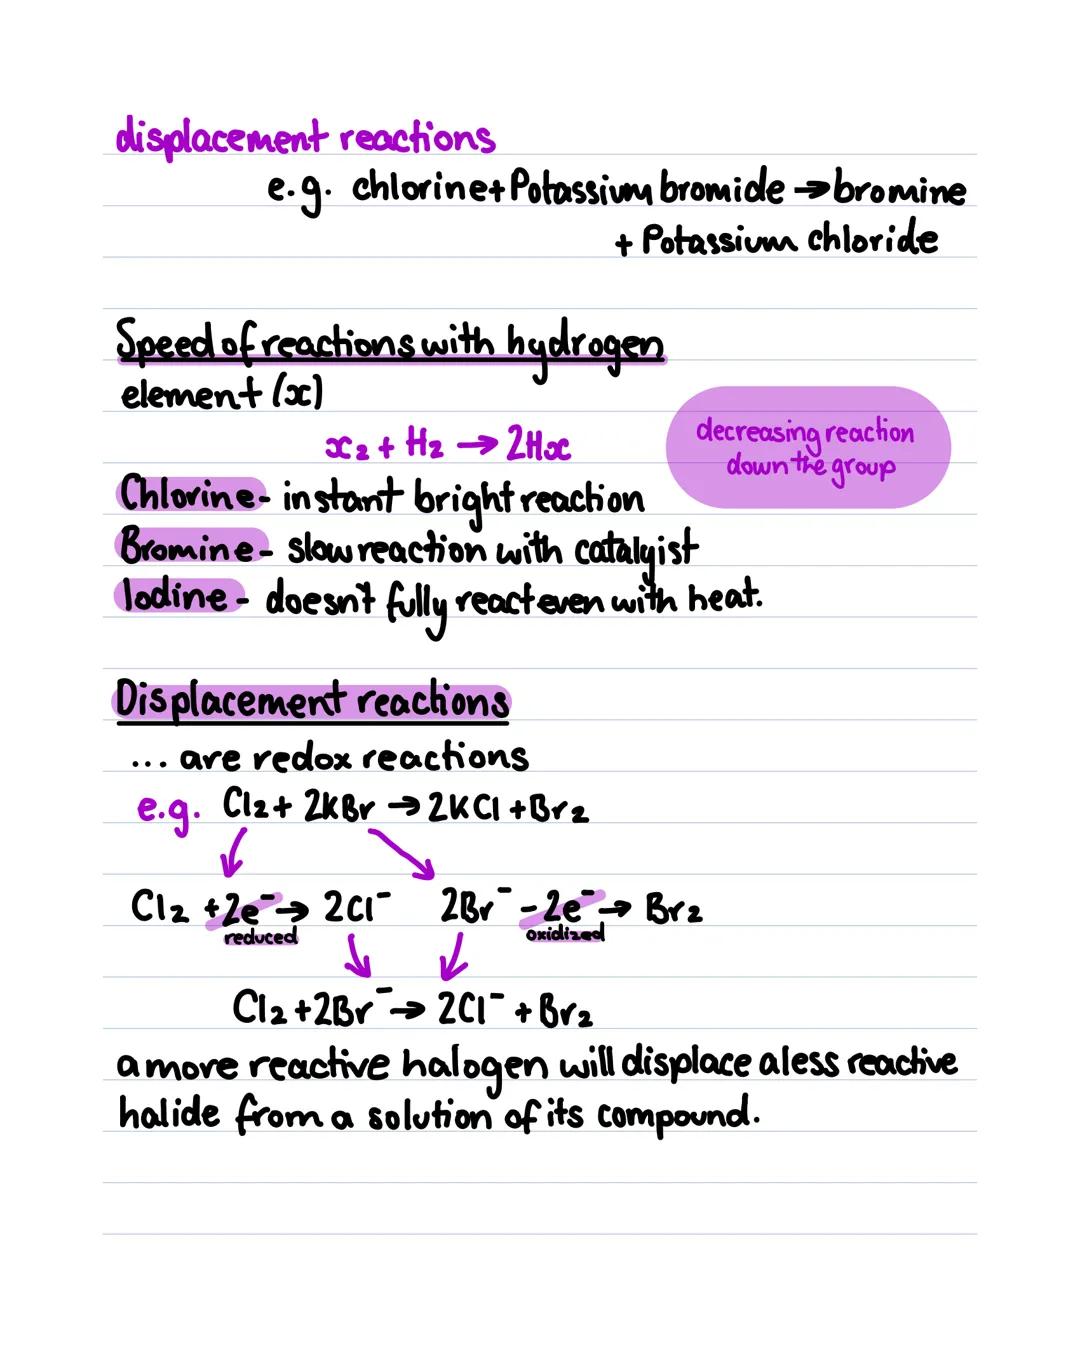 displacement reactions
e.g. chlorine + Potassium bromide → bromine
+ Potassium chloride
Speed of reactions with hydrogen
element (x)
x₂ + H₂ → 2Hx
decreasing reaction
down the group
Chlorine - instant bright reaction
Bromine - slow reaction with catalyist
Iodine - doesn't fully react even with heat.
Displacement reactions
... are redox reactions
e.g. Cl₂ + 2KBr → 2KCl + Br₂
Cl₂ + 2e⁻ → 2Cl⁻ 2Br⁻ - 2e⁻ → Br₂
reduced oxidized
Cl₂ + 2Br⁻ → 2Cl⁻ + Br₂
a more reactive halogen will displace a less reactive
halide from a solution of its compound.